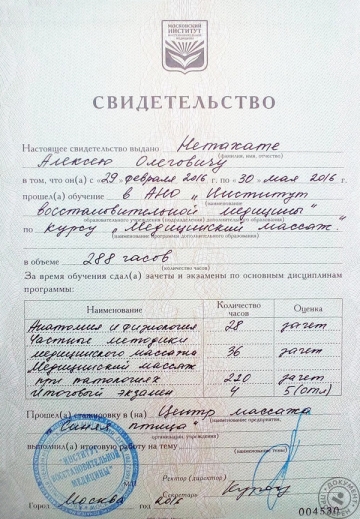 МОСКОВСКИЙ
ИНСТИТУТ
СВИДЕТЕЛЬСТВО
Настоящее свидетельство выдано
(фамилия, имя, отчество)
Алексею Олеговичу
в том, что он(а) с «29» февраля 2016 г. по «30» мая 2016 г.
прошел(а) обучение в АНО „Институт
восстановительной медицины"
по курсу „Медицинский массаж"
(наименование программы дополнительного образования)
в объеме 288 часов
(количество часов)
За время обучения сдал(а) зачеты и экзамены по основным дисциплинам
программы:
Наименование Количество часов Оценка
Анатомия и физиология 28 зачет
Частные методики
медицинского массажа 36 зачет
Медицинский массаж
при патологиях 220 зачет
Итоговый экзамен 4 5(отл)
Прошел(а) стажировку в (на) Центр массажа
„Синяя птица"
организации, учреждения)
выполнил(а) итоговую работу на тему
Ректор (директор)
Секретарь
Город Москва 2016
004530
"ИНСТИТУТ
ВОССТАНОВИТЕЛЬНОЙ
МЕДИЦИНЫ"